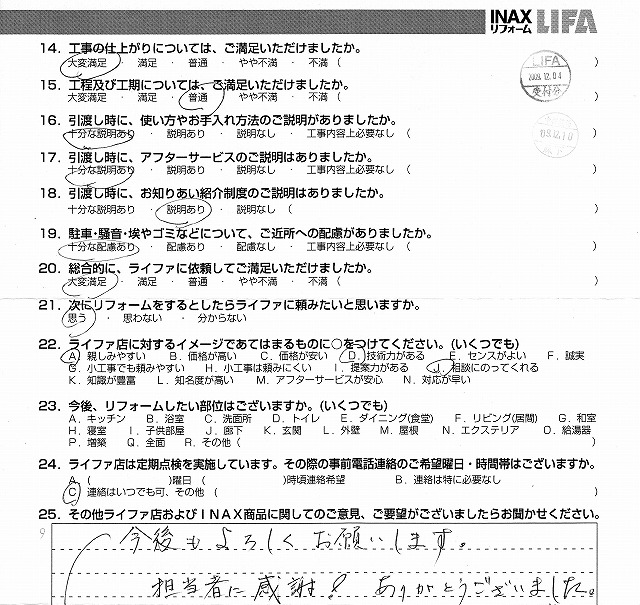 INAX
リフォーム LIFA
14. 工事の仕上がりについては、ご満足いただけましたか。
大変満足 ・ 満足 ・ 普通 ・ やや不満 ・ 不満 ( )
15. 工程及び工期については、ご満足いただけましたか。
大変満足 ・ 満足 ・ 普通 ・ やや不満 ・ 不満 ( )
LIFA
2009.12.04
受付分
16. 引渡し時に、使い方やお手入れ方法のご説明がありましたか。
十分な説明あり ・ 説明あり ・ 説明なし ・ 工事内容上必要なし ( )
09.12.10
17. 引渡し時に、アフターサービスのご説明はありましたか。
十分な説明あり ・ 説明あり ・ 説明なし ・ 工事内容上必要なし ( )
18. 引渡し時に、お知りあい紹介制度のご説明はありましたか。
十分な説明あり ・ 説明あり ・ 説明なし ( )
19. 駐車・騒音・埃やゴミなどについて、ご近所への配慮がありましたか。
十分な配慮あり ・ 配慮あり ・ 配慮なし ・ 工事内容上必要なし ( )
20. 総合的に、ライファに依頼してご満足いただけましたか。
大変満足 ・ 満足 ・ 普通 ・ やや不満 ・ 不満 ( )
21. 次にリフォームをするとしたらライファに頼みたいと思いますか。
思う ・ 思わない ・ 分からない
22. ライファ店に対するイメージであてはまるものに○をつけてください。(いくつでも)
A. 親しみやすい B. 価格が高い C. 価格が安い D. 技術力がある E. センスがよい F. 誠実
G. 小工事でも頼みやすい H. 小工事は頼みにくい I. 提案力がある J. 相談にのってくれる
K. 知識が豊富 L. 知名度が高い M. アフターサービスが安心 N. 対応が早い
23. 今後、リフォームしたい部位はございますか。(いくつでも)
A. キッチン B. 浴室 C. 洗面所 D. トイレ E. ダイニング(食堂) F. リビング(居間) G. 和室
H. 寝室 I. 子供部屋 J. 廊下 K. 玄関 L. 外壁 M. 屋根 N. エクステリア O. 給湯器
P. 増築 Q. 全面 R. その他 ( )
24. ライファ店は定期点検を実施しています。その際の事前電話連絡のご希望曜日・時間帯はございますか。
A. ( )曜日 ( )時頃連絡希望 B. 連絡は特に必要なし
C. 連絡はいつでも可、その他 ( )
25. その他ライファ店およびINAX商品に関してのご意見、ご要望がございましたらお聞かせください。
今後もよろしくお願いします。
担当者に感謝! ありがとうございました。